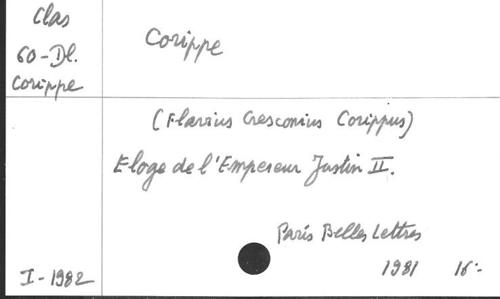 Clas
60-Dl.
Corippe
Corippe
(Flavius Cresconius Corippus)
Eloge de l'Empereur Justin II.
Paris Belles Lettres
1981 16:-
I-1982